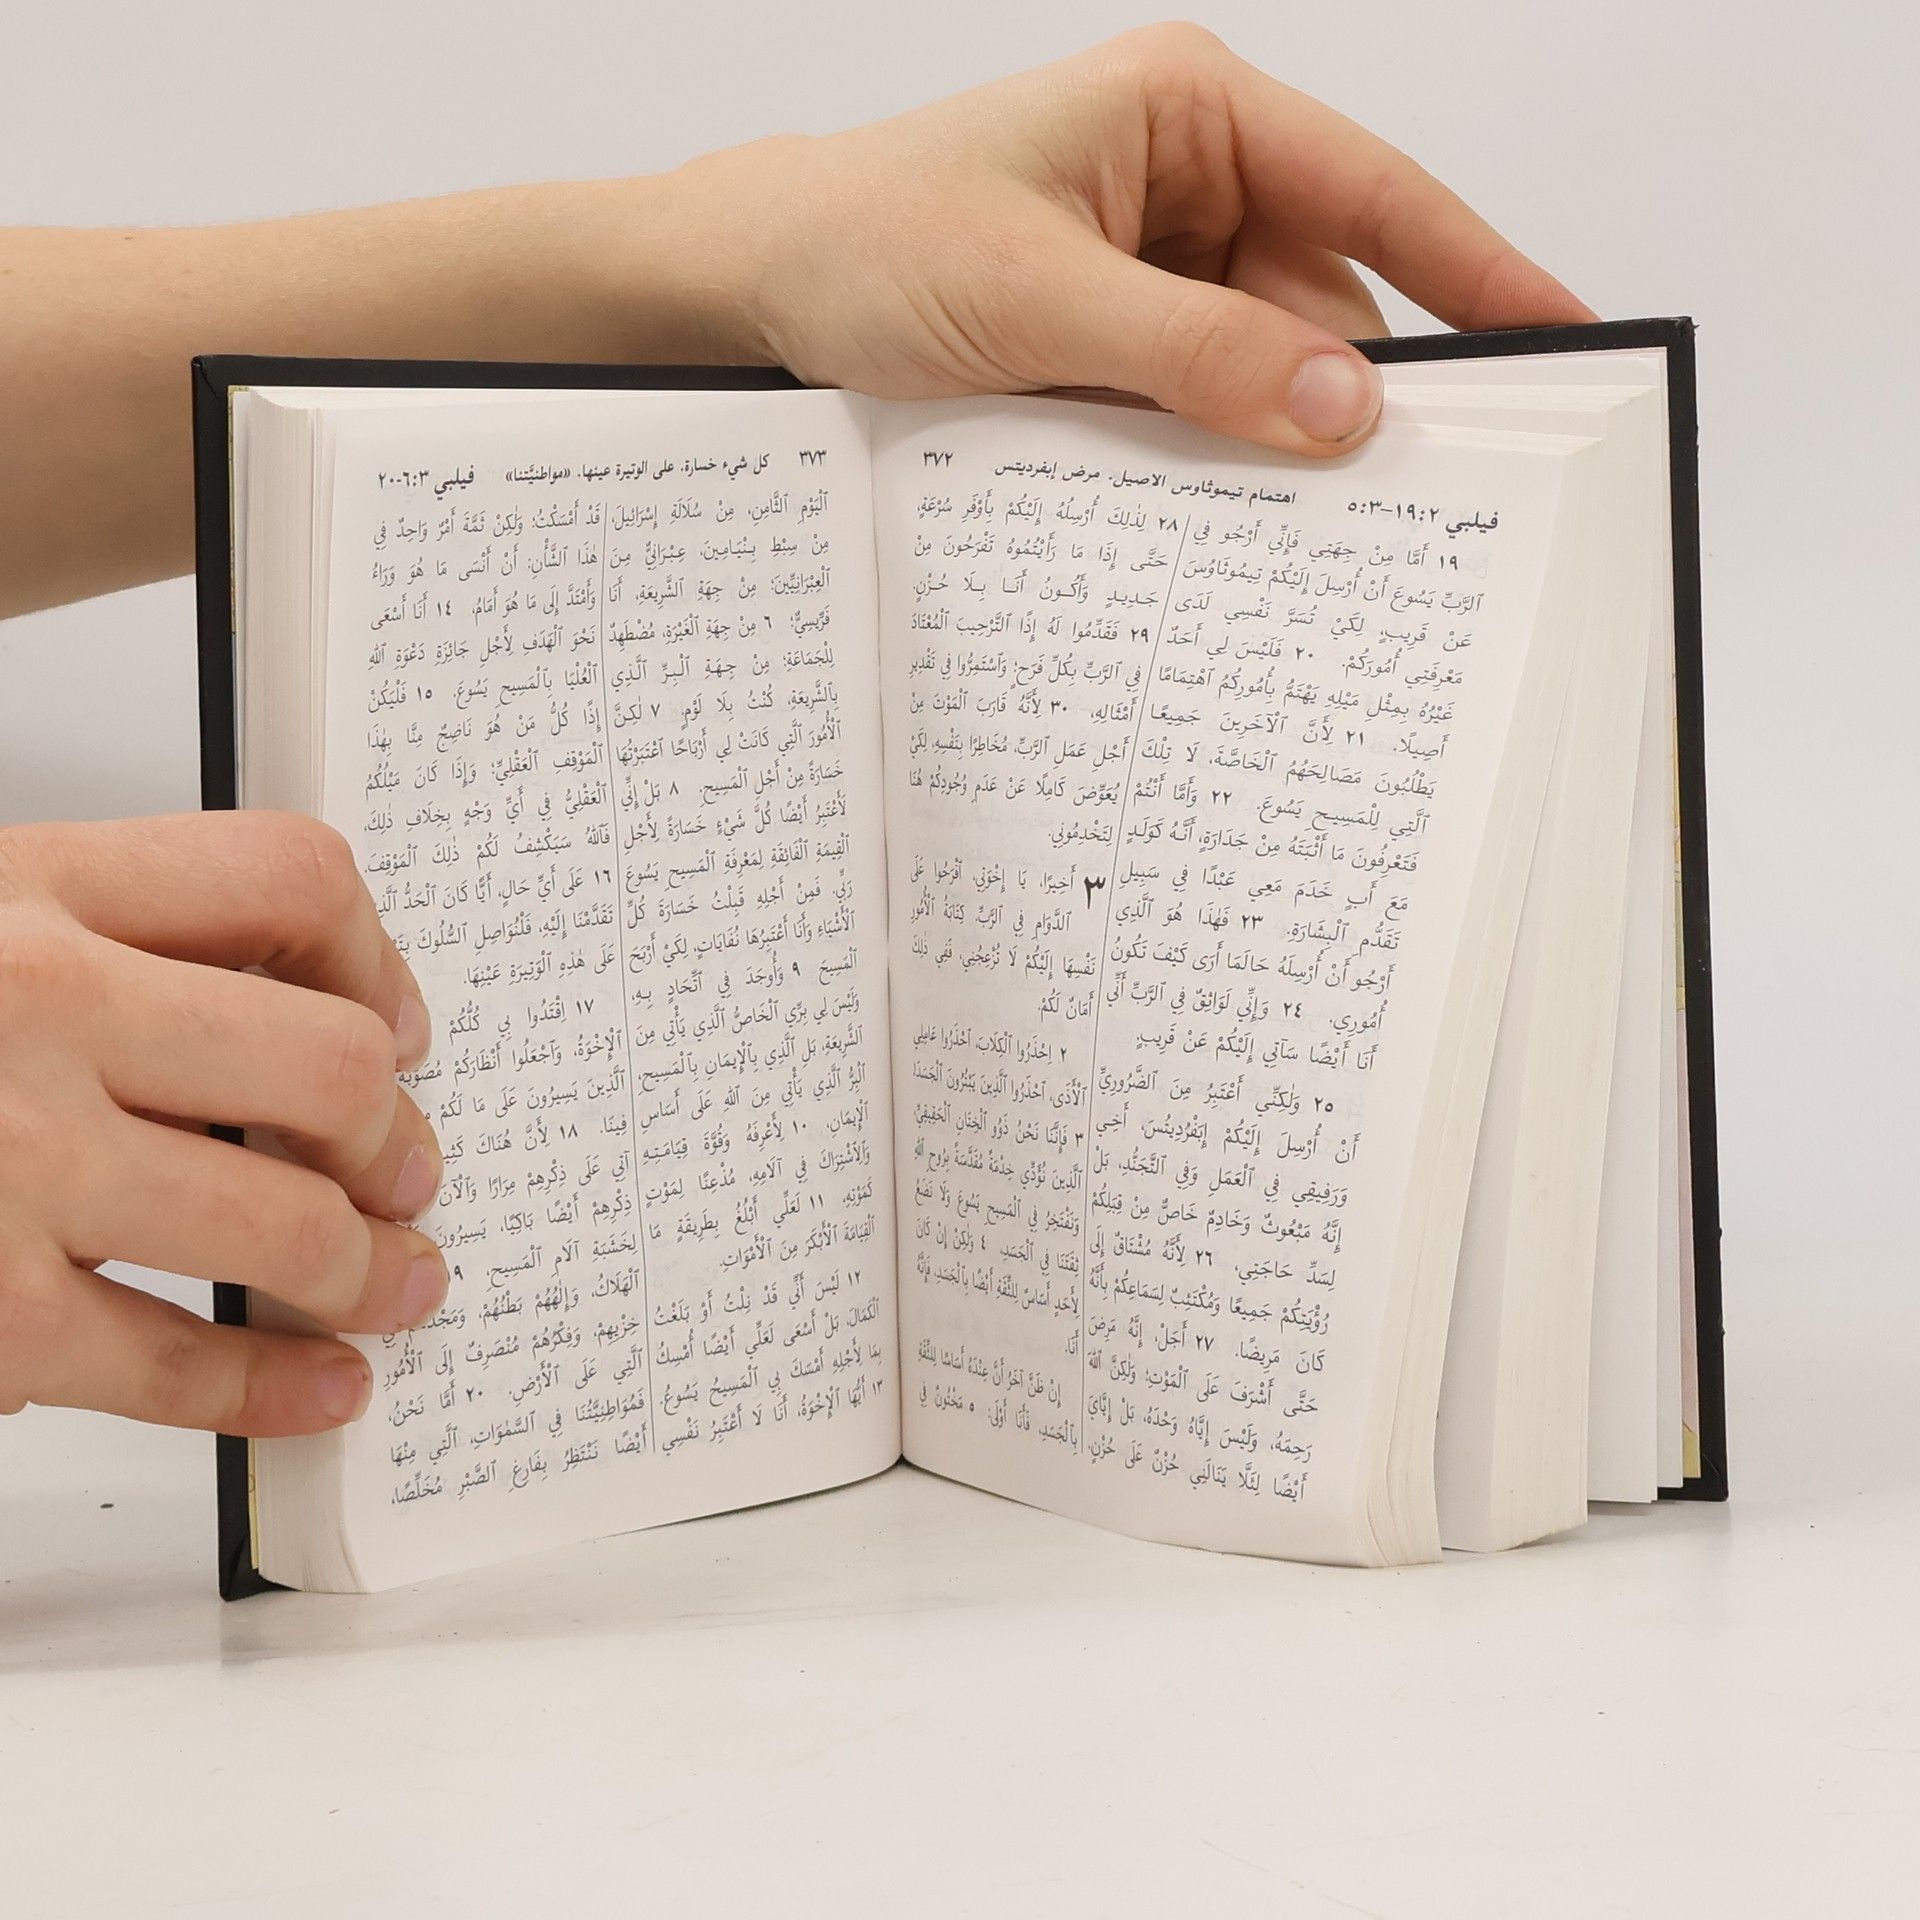 فيلبي ٢:‏١٩–‏٣:‏٥
اهتمام تيموثاوس الاصيل. مرض إبفرديتس
٣٧٢
١٩ أَمَّا مِنْ جِهَتِي فَإِنِّي أَرْجُو فِي
ٱلرَّبِّ يَسُوعَ أَنْ أُرْسِلَ إِلَيْكُمْ تِيمُوثَاوُسَ
عَنْ قَرِيبٍ، لِكَيْ تُسَرَّ نَفْسِي لَدَى
مَعْرِفَتِي أُمُورَكُمْ. ٢٠ فَلَيْسَ لِي أَحَدٌ
غَيْرُهُ بِمِثْلِ مَيْلِهِ يَهْتَمُّ بِأُمُورِكُمُ ٱهْتِمَامًا
أَصِيلًا. ٢١ لِأَنَّ ٱلْآخَرِينَ جَمِيعًا
يَطْلُبُونَ مَصَالِحَهُمُ ٱلْخَاصَّةَ، لَا تِلْكَ
ٱلَّتِي لِلْمَسِيحِ يَسُوعَ. ٢٢ وَأَمَّا أَنْتُمْ
فَتَعْرِفُونَ مَا أَثْبَتَهُ مِنْ جَدَارَةٍ، أَنَّهُ كَوَلَدٍ
مَعَ أَبٍ خَدَمَ مَعِي عَبْدًا فِي سَبِيلِ
تَقَدُّمِ ٱلْبِشَارَةِ. ٢٣ فَهٰذَا هُوَ ٱلَّذِي
أَرْجُو أَنْ أُرْسِلَهُ حَالَمَا أَرَى كَيْفَ تَكُونُ
أُمُورِي. ٢٤ وَإِنِّي لَوَاثِقٌ فِي ٱلرَّبِّ أَنِّي
أَنَا أَيْضًا سَآتِي إِلَيْكُمْ عَنْ قَرِيبٍ.
٢٥ وَلٰكِنِّي أَعْتَبِرُ مِنَ ٱلضَّرُورِيِّ
أَنْ أُرْسِلَ إِلَيْكُمْ إِبَفْرُدِيتُسَ، أَخِي
وَرَفِيقِي فِي ٱلْعَمَلِ وَفِي ٱلتَّجَنُّدِ، بَلْ
إِنَّهُ مَبْعُوثٌ وَخَادِمٌ خَاصٌّ مِنْ قِبَلِكُمْ
لِسَدِّ حَاجَتِي، ٢٦ لِأَنَّهُ مُشْتَاقٌ إِلَى
رُؤْيَتِكُمْ جَمِيعًا وَمُكْتَئِبٌ لِسَمَاعِكُمْ بِأَنَّهُ
كَانَ مَرِيضًا. ٢٧ أَجَلْ، إِنَّهُ مَرِضَ
حَتَّى أَشْرَفَ عَلَى ٱلْمَوْتِ؛ وَلٰكِنَّ ٱللّٰهَ
رَحِمَهُ، وَلَيْسَ إِيَّاهُ وَحْدَهُ، بَلْ إِيَّايَ
أَيْضًا لِئَلَّا يَنَالَنِي حُزْنٌ عَلَى حُزْنٍ.
٢٨ لِذٰلِكَ أُرْسِلُهُ إِلَيْكُمْ بِأَوْفَرِ سُرْعَةٍ،
حَتَّى إِذَا مَا رَأَيْتُمُوهُ تَفْرَحُونَ مِنْ
جَدِيدٍ وَأَكُونُ أَنَا بِلَا حُزْنٍ.
٢٩ فَقَدِّمُوا لَهُ إِذًا ٱلتَّرْحِيبَ ٱلْمُعْتَادَ
فِي ٱلرَّبِّ بِكُلِّ فَرَحٍ؛ وَٱسْتَمِرُّوا فِي تَقْدِيرِ
أَمْثَالِهِ، ٣٠ لِأَنَّهُ قَارَبَ ٱلْمَوْتَ مِنْ
أَجْلِ عَمَلِ ٱلرَّبِّ، مُخَاطِرًا بِنَفْسِهِ، لِكَيْ
يُعَوِّضَ كَامِلًا عَنْ عَدَمِ وُجُودِكُمْ هُنَا
لِتَخْدِمُونِي.
٣ أَخِيرًا، يَا إِخْوَتِي، ٱفْرَحُوا عَلَى
ٱلدَّوَامِ فِي ٱلرَّبِّ. كِتَابَةُ ٱلْأُمُورِ
نَفْسِهَا إِلَيْكُمْ لَا تُزْعِجُنِي، فَفِي ذٰلِكَ
أَمَانٌ لَكُمْ.
٢ اِحْذَرُوا ٱلْكِلَابَ، ٱحْذَرُوا عَامِلِي
ٱلْأَذَى، ٱحْذَرُوا ٱلَّذِينَ يَبْتُرُونَ ٱلْجَسَدَ!
٣ فَإِنَّنَا نَحْنُ ذَوُو ٱلْخِتَانِ ٱلْحَقِيقِيِّ،
ٱلَّذِينَ نُؤَدِّي خِدْمَةً مُقَدَّسَةً بِرُوحِ ٱللّٰهِ
وَنَفْتَخِرُ فِي ٱلْمَسِيحِ يَسُوعَ وَلَا نَضَعُ
ثِقَتَنَا فِي ٱلْجَسَدِ، ٤ وَلٰكِنْ إِنْ كَانَ
لِأَحَدٍ أَسَاسٌ لِلثِّقَةِ أَيْضًا بِٱلْجَسَدِ، فَإِنَّهُ
أَنَا.
إِنْ ظَنَّ آخَرُ أَنَّ عِنْدَهُ أَسَاسًا لِلثِّقَةِ
بِٱلْجَسَدِ، فَأَنَا أَوْلَى: ٥ مَخْتُونٌ فِي
٣٧٣
كل شيء خسارة. على الوتيرة عينها. «مواطنيَّتنا»
فيلبي ٣:‏٦-‏٢٠
ٱلْيَوْمِ ٱلثَّامِنِ، مِنْ سُلَالَةِ إِسْرَائِيلَ،
مِنْ سِبْطِ بِنْيَامِينَ، عِبْرَانِيٌّ مِنَ
ٱلْعِبْرَانِيِّينَ؛ مِنْ جِهَةِ ٱلشَّرِيعَةِ، أَنَا
فَرِّيسِيٌّ؛ ٦ مِنْ جِهَةِ ٱلْغَيْرَةِ، مُضْطَهِدٌ
لِلْجَمَاعَةِ؛ مِنْ جِهَةِ ٱلْبِرِّ ٱلَّذِي
بِٱلشَّرِيعَةِ، كُنْتُ بِلَا لَوْمٍ. ٧ لٰكِنَّ
ٱلْأُمُورَ ٱلَّتِي كَانَتْ لِي أَرْبَاحًا ٱعْتَبَرْتُهَا
خَسَارَةً مِنْ أَجْلِ ٱلْمَسِيحِ. ٨ بَلْ إِنِّي
لَأَعْتَبِرُ أَيْضًا كُلَّ شَيْءٍ خَسَارَةً لِأَجْلِ
ٱلْقِيمَةِ ٱلْفَائِقَةِ لِمَعْرِفَةِ ٱلْمَسِيحِ يَسُوعَ
رَبِّي. فَمِنْ أَجْلِهِ قَبِلْتُ خَسَارَةَ كُلِّ
ٱلْأَشْيَاءِ وَأَنَا أَعْتَبِرُهَا نُفَايَاتٍ، لِكَيْ أَرْبَحَ
ٱلْمَسِيحَ ٩ وَأُوجَدَ فِي ٱتِّحَادٍ بِهِ،
وَلَيْسَ لِي بِرِّي ٱلْخَاصُّ ٱلَّذِي يَأْتِي مِنَ
ٱلشَّرِيعَةِ، بَلِ ٱلَّذِي بِٱلْإِيمَانِ بِٱلْمَسِيحِ،
ٱلْبِرُّ ٱلَّذِي يَأْتِي مِنَ ٱللّٰهِ عَلَى أَسَاسِ
ٱلْإِيمَانِ، ١٠ لِأَعْرِفَهُ وَقُوَّةَ قِيَامَتِهِ
وَٱلِٱشْتِرَاكَ فِي آلَامِهِ، مُذْعِنًا لِمَوْتٍ
كَمَوْتِهِ، ١١ لَعَلِّي أَبْلُغُ بِطَرِيقَةٍ مَا
ٱلْقِيَامَةَ ٱلْأَبْكَرَ مِنَ ٱلْأَمْوَاتِ.
١٢ لَيْسَ أَنِّي قَدْ نِلْتُ أَوْ بَلَغْتُ
ٱلْكَمَالَ، بَلْ أَسْعَى لَعَلِّي أَيْضًا أُمْسِكُ
بِمَا لِأَجْلِهِ أَمْسَكَ بِي ٱلْمَسِيحُ يَسُوعُ.
١٣ أَيُّهَا ٱلْإِخْوَةُ، أَنَا لَا أَعْتَبِرُ نَفْسِي
قَدْ أَمْسَكْتُ؛ وَلٰكِنْ ثَمَّةَ أَمْرٌ وَاحِدٌ فِي
هٰذَا ٱلشَّأْنِ: أَنْ أَنْسَى مَا هُوَ وَرَاءُ
وَأَمْتَدَّ إِلَى مَا هُوَ أَمَامُ، ١٤ أَنَا أَسْعَى
نَحْوَ ٱلْهَدَفِ لِأَجْلِ جَائِزَةِ دَعْوَةِ ٱللّٰهِ
ٱلْعُلْيَا بِٱلْمَسِيحِ يَسُوعَ. ١٥ فَلْيَكُنْ
إِذًا كُلُّ مَنْ هُوَ نَاضِجٌ مِنَّا بِهٰذَا
ٱلْمَوْقِفِ ٱلْعَقْلِيِّ؛ وَإِذَا كَانَ مَيْلُكُمُ
ٱلْعَقْلِيُّ فِي أَيِّ وَجْهٍ بِخِلَافِ ذٰلِكَ،
فَٱللّٰهُ سَيَكْشِفُ لَكُمْ ذٰلِكَ ٱلْمَوْقِفَ.
١٦ عَلَى أَيِّ حَالٍ، أَيًّا كَانَ ٱلْحَدُّ
تَقَدَّمْنَا إِلَيْهِ، فَلْنُوَاصِلِ ٱلسُّلُوكَ
عَلَى هٰذِهِ ٱلْوَتِيرَةِ عَيْنِهَا.
١٧ اِقْتَدُوا بِي كُلُّكُمْ
ٱلْإِخْوَةُ، وَٱجْعَلُوا أَنْظَارَكُمْ
ٱلَّذِينَ يَسِيرُونَ عَلَى مَا لَكُمْ
فِينَا. ١٨ لِأَنَّ هُنَاكَ
آتِي عَلَى ذِكْرِهِمْ مِرَارًا وَٱلْآنَ
ذِكْرِهِمْ أَيْضًا بَاكِيًا، يَسِيرُونَ
لِخَشَبَةِ آلَامِ ٱلْمَسِيحِ،
ٱلْهَلَاكُ، وَإِلٰهُهُمْ بَطْنُهُمْ،
خِزْيِهِمْ، وَفِكْرُهُمْ مُنْصَرِفٌ إِلَى ٱلْأُمُورِ
ٱلَّتِي عَلَى ٱلْأَرْضِ. ٢٠ أَمَّا نَحْنُ،
فَمُوَاطِنِيَّتُنَا فِي ٱلسَّمٰوَاتِ، ٱلَّتِي مِنْهَا
أَيْضًا نَنْتَظِرُ بِفَارِغِ ٱلصَّبْرِ مُخَلِّصًا،